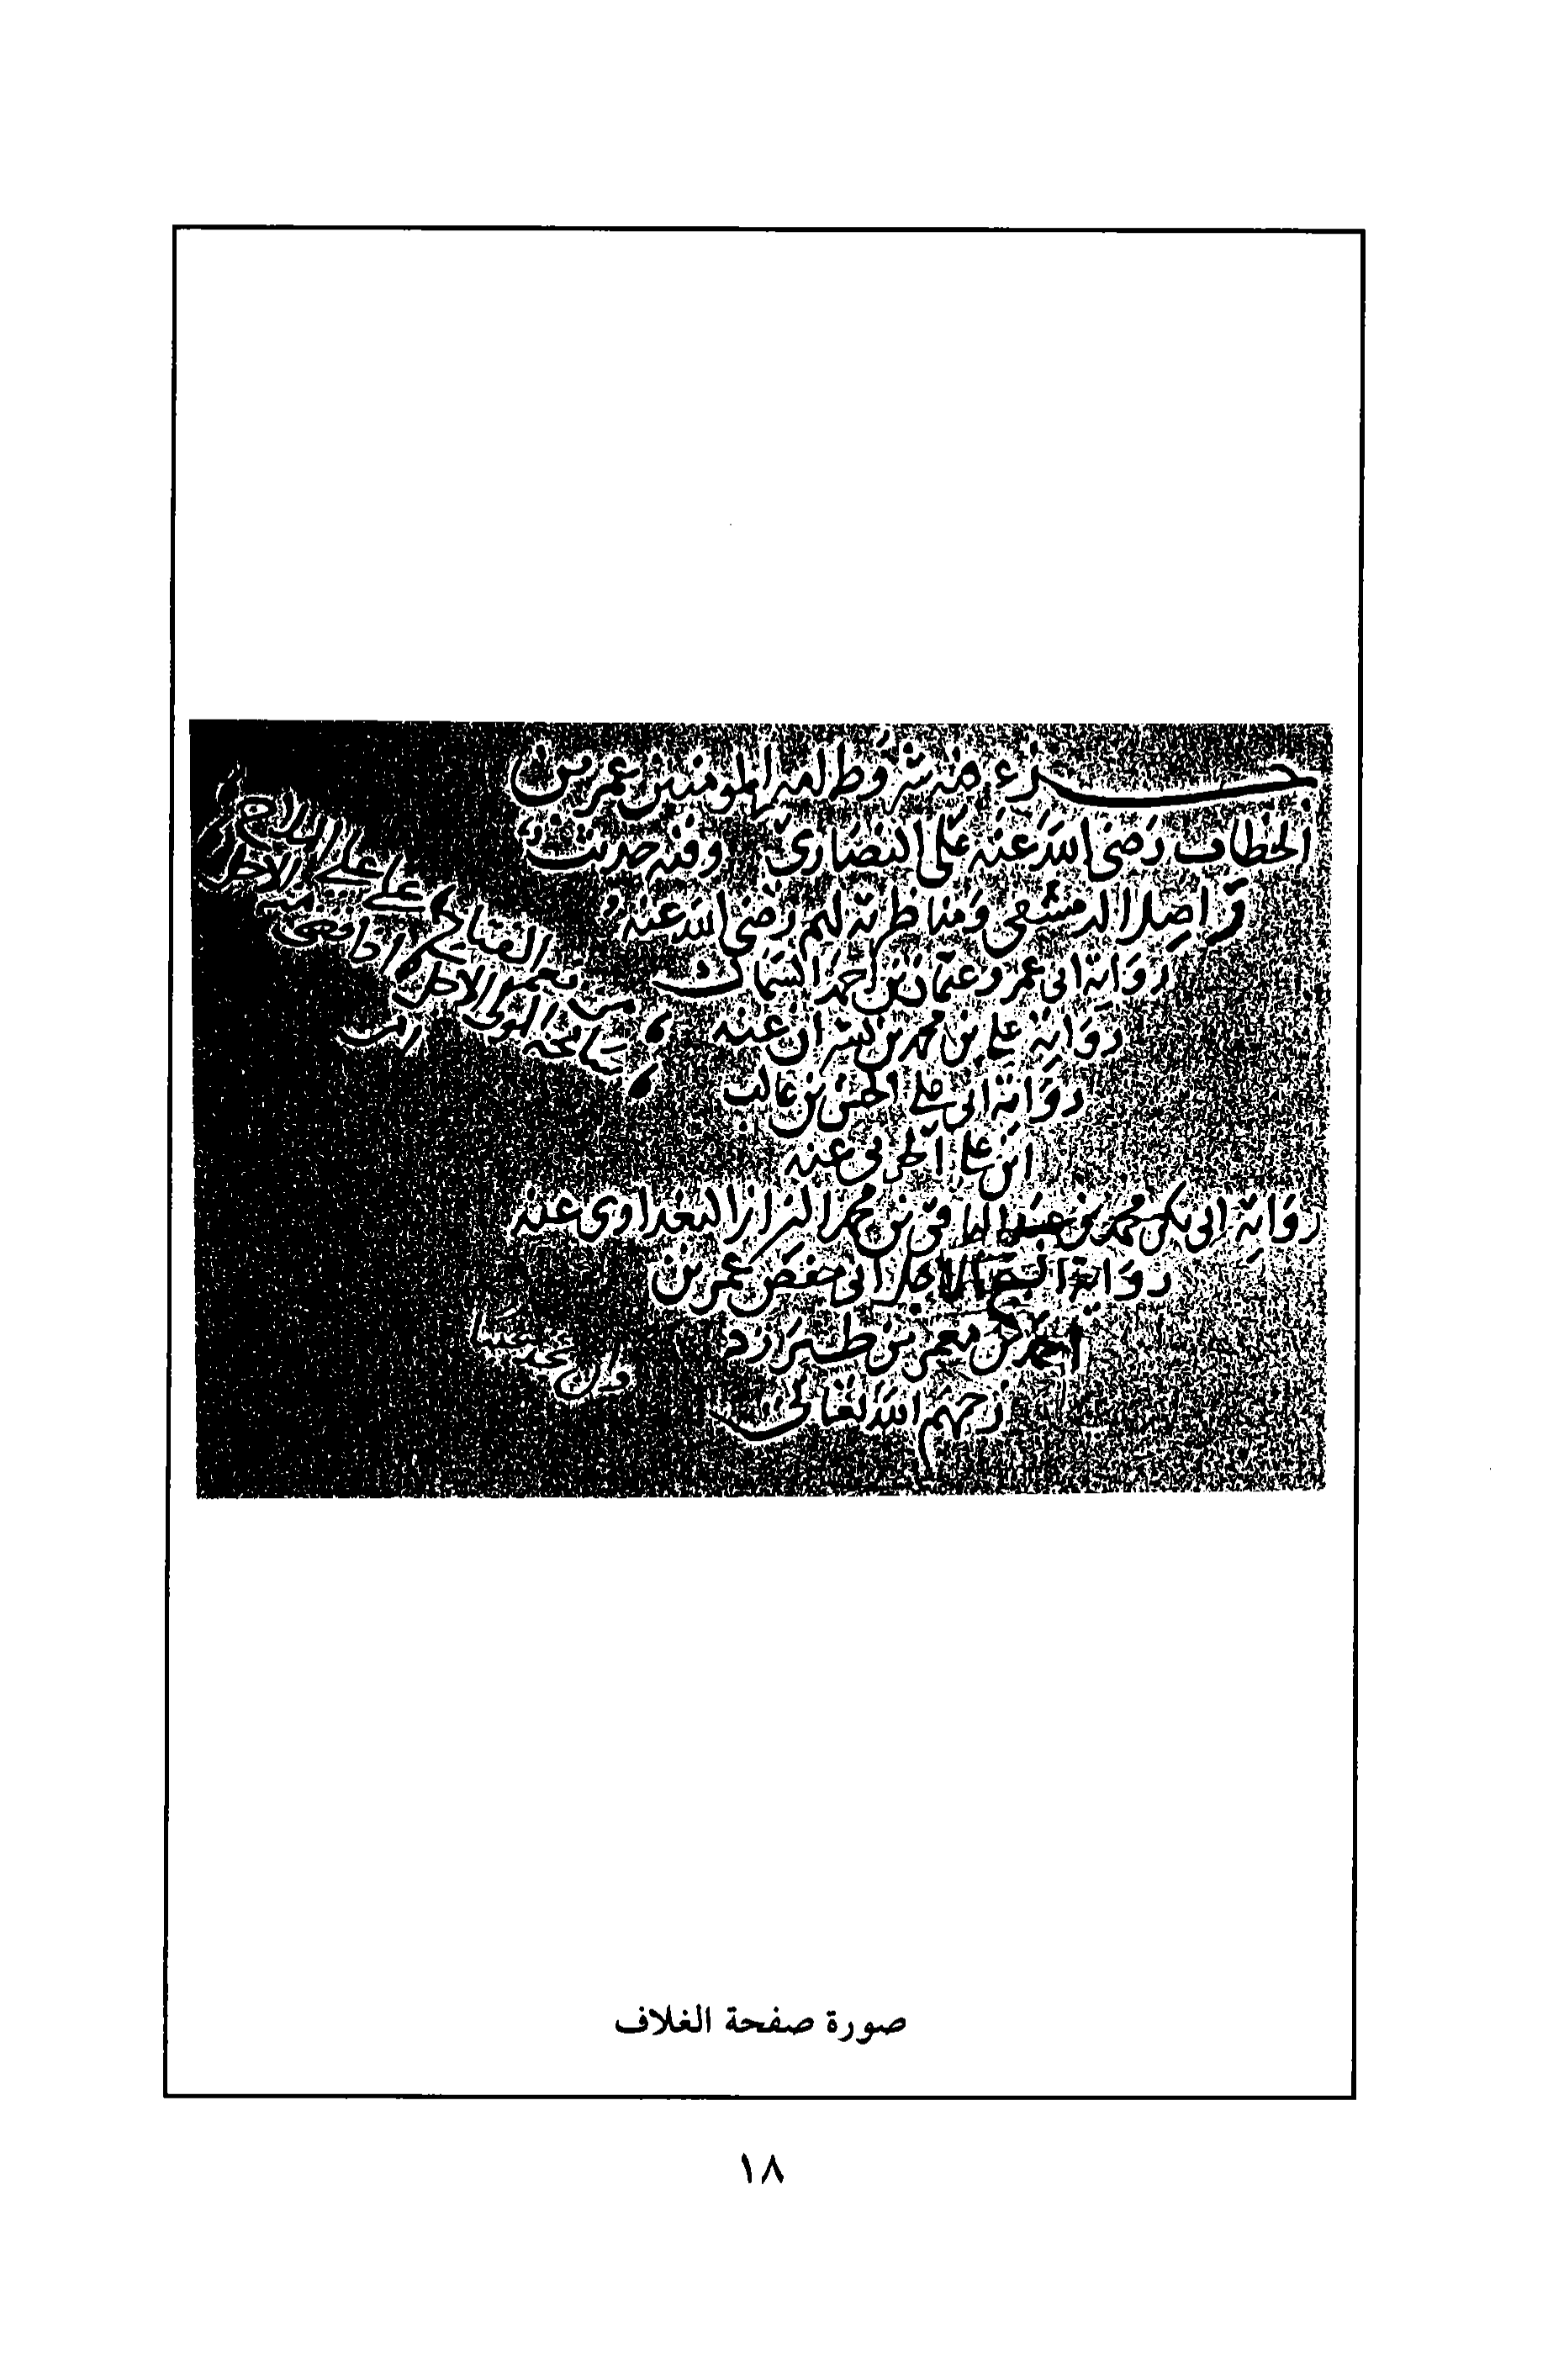 جزء فيه شروط امير المومنين عمر بن
الخطاب رضى الله عنه على النصارى وفيه حديث
واصل الدمشقى ومناظرته لهم رضى الله عنه
رواية ابى عمرو عثمان بن احمد السماك
رواية على بن محمد بن بشران عنه
رواية ابى على الحسن بن غالب
ابن على الحربى عنه
رواية ابى بكر محمد بن عبد الباقى بن محمد البزاز البغدادى عنه
رواية الشيخ الاجل ابى حفص عمر بن
محمد بن معمر بن طبرزد
رحمهم الله تعالى
صورة صفحة الغلاف
١٨